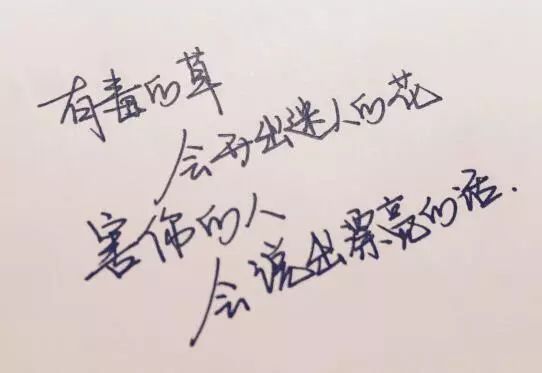 有毒的草
会开出迷人的花
害你的人
会说出漂亮的话.